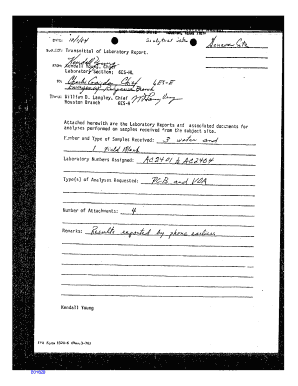 DATE: 10/1/84
Analytical data
Geneva Site
SUBJECT: Transmittal of Laboratory Report.
FROM: Kendall Young, Chief
Laboratory Section: 6ES-HL
TO: Charles Gazda, Chief 6ES-E
Emergency Response Branch
THRU: William D. Langley, Chief
Houston Branch
Attached herewith are the Laboratory Reports and associated documents for
analyses performed on samples received from the subject site.
Number and Type of Samples Received: 3 water and
1 Field Blank
Laboratory Numbers Assigned: AC2401 to AC2404
Type(s) of Analyses Requested: PCB and VOA
Number of Attachments: 4
Remarks: Results reported by phone earlier
Kendall Young